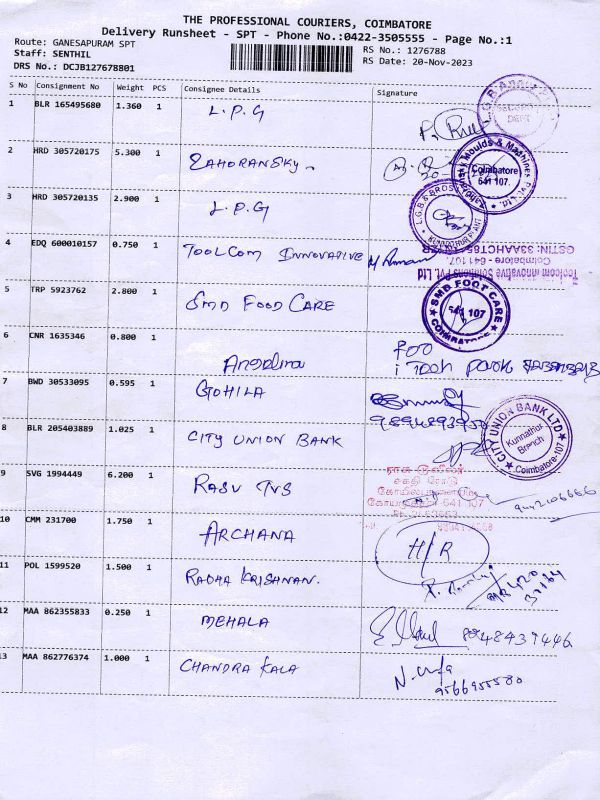 THE PROFESSIONAL COURIERS, COIMBATORE
Delivery Runsheet - SPT - Phone No.:0422-3505555 - Page No.:1
Route: GANESAPURAM SPT
Staff: SENTHIL
RS No.: 1276788
DRS No.: DCJB127678801
RS Date: 20-Nov-2023
S No Consignment No Weight PCS Consignee Details Signature
1 BLR 165495680 1.360 1 L.P.G
2 HRD 305720175 5.300 1 ZAHORANSKY
Moulds & Machines
Coimbatore
641 107.
3 HRD 305720135 2.900 1 L.P.G
L.G.B & BROS
4 EDQ 600010157 0.750 1 TOOLCOM INNOVATIVE
Toolcom Innovative Solutions Pvt. Ltd
Coimbatore - 641 107.
5 TRP 5923762 2.800 1 SMD FOOD CARE
SMD FOOT CARE
641 107
COIMBATORE
6 CNR 1635346 0.800 1 Angelina
i Tech park
7 BWD 30533095 0.595 1 GOHILA
8 BLR 205403889 1.025 1 CITY UNION BANK
CITY UNION BANK LTD
Kunnathur
Branch
Coimbatore-107
9 SVG 1994449 6.200 1 RASU TVS
சக்தி ரோடு
10 CMM 231700 1.750 1 ARCHANA
H/R
11 POL 1599520 1.500 1 RADHA KRISHNAN.
12 MAA 862355833 0.250 1 MEHALA
8948437446
13 MAA 862776374 1.000 1 CHANDRA KALA
9566955580